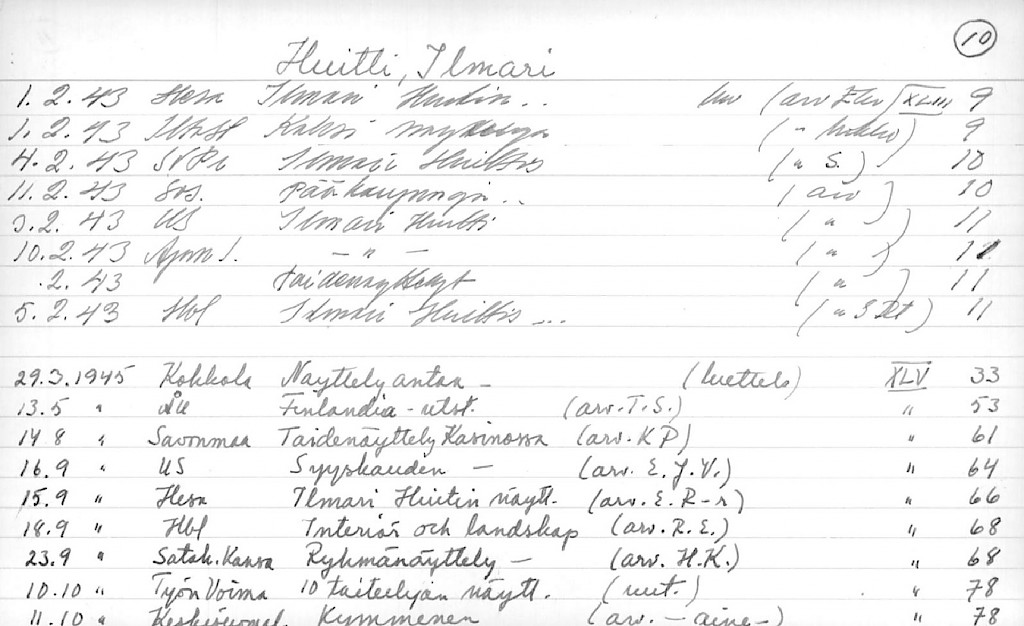 10
Huitti, Ilmari
1.2.43 Hesa Ilmari Huitin .. kuv (arv EKu) XLIII 9
1.2.43 Kaksi näyttelyä (" ) 9
4.2.43 SvPr Ilmari Huittis (" S.) 10
11.2.43 Sos. Pääkaupungin .. (arv) 10
3.2.43 US Ilmari Huitti (" ) 11
10.2.43 Ajan S. — " — (" ) 11
.2.43 Taidenäyttelyt (" ) 11
5.2.43 Hbl Ilmari Huittis ... (" ) 11
29.3.1945 Kokkola Näyttely antaa — (luettelo) XLV 33
13.5 " ÅU Finlandia-utst. (arv. T.S.) " 53
14.8 " Savonmaa Taidenäyttely Kasinossa (arv. KP) " 61
16.9 " US Syyskauden — (arv. E.J.V.) " 64
15.9 " Hesa Ilmari Huitin näytt. (arv. E.R-r) " 66
18.9 " Hbl Interiör och landskap (arv. R.E.) " 68
23.9 " Satak. Kansa Ryhmänäyttely — (arv. H.K.) " 68
10.10 " Työn Voima 10 taiteilijan näytt. (uut.) " 78
11.10 " Keskisuomal. Kymmenen (arv. —aine—) " 78